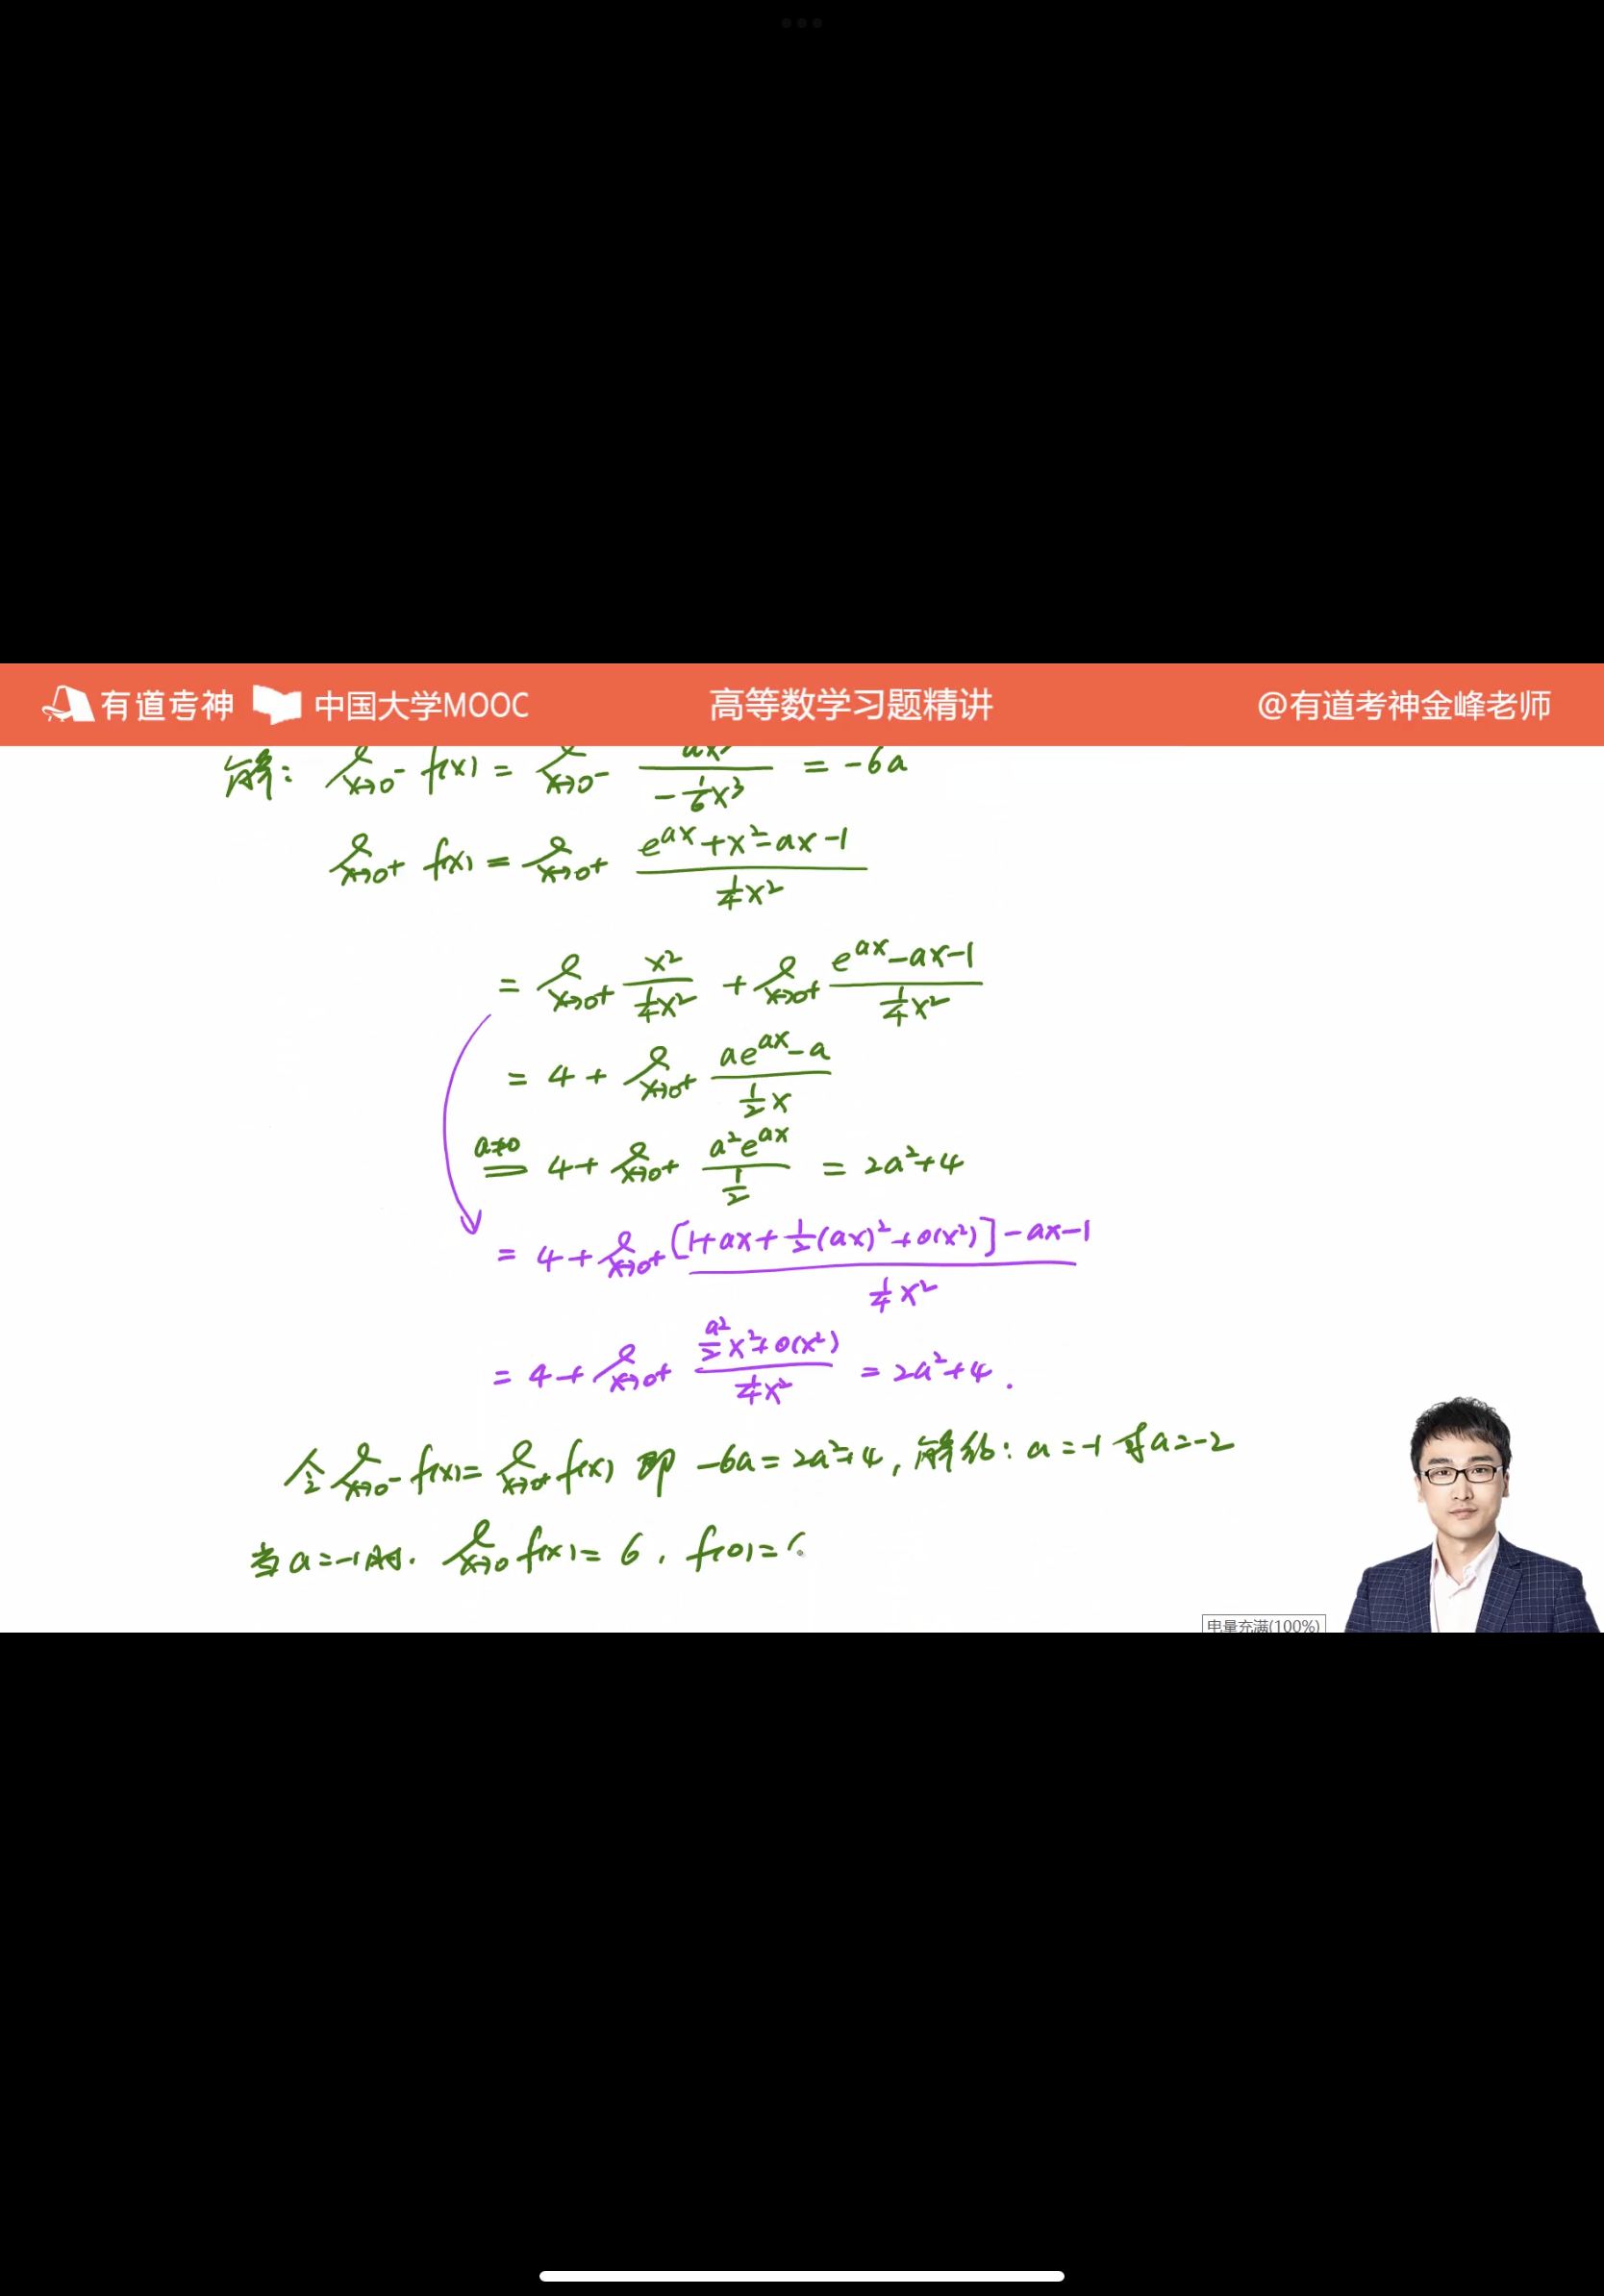 有道考神 中国大学MOOC 高等数学习题精讲 @有道考神金峰老师
解: lim x→0⁻ f(x) = lim x→0⁻ ax³/(-1/6 x³) = -6a
lim x→0⁺ f(x) = lim x→0⁺ (e^(ax)+x²-ax-1)/(1/4 x²)
= lim x→0⁺ x²/(1/4 x²) + lim x→0⁺ (e^(ax)-ax-1)/(1/4 x²)
= 4 + lim x→0⁺ (ae^(ax)-a)/(1/2 x)
a≠0 = 4 + lim x→0⁺ (a²e^(ax))/(1/2) = 2a²+4
= 4 + lim x→0⁺ ([1+ax+1/2(ax)²+o(x²)]-ax-1)/(1/4 x²)
= 4 + lim x→0⁺ (a²/2 x²+o(x²))/(1/4 x²) = 2a²+4.
令 lim x→0⁻ f(x) = lim x→0⁺ f(x) 即 -6a = 2a²+4, 解得: a=-1 或 a=-2
当 a=-1 时. lim x→0 f(x) = 6, f(0) =
电量充满(100%)